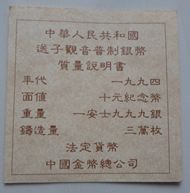 中華人民共和國
送子觀音普制銀幣
質量説明書
年代 一九九四
面值 十元紀念幣
重量 一安士九九九銀
鑄造量 三萬枚
法定貨幣
中國金幣總公司